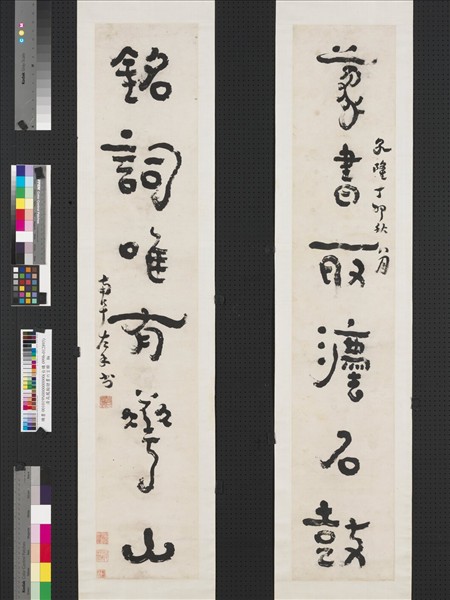 篆書取灋石鼓
乾隆丁卯秋八月
銘詞唯有華山
南阜左手書